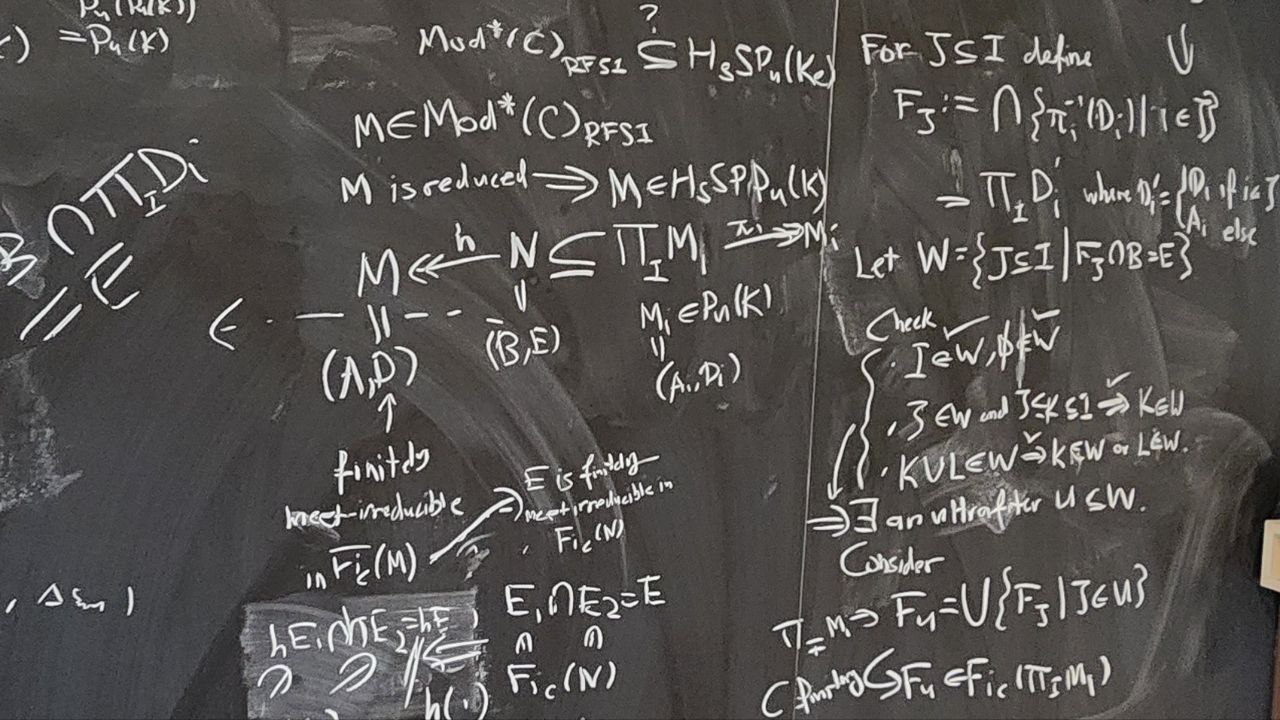 Pu(Pu(K))
) = Pu(K)
B ∩ ∏_I D_i
= E
, Δ Em )
?
Mod*(C)_RFSI ⊆ H_S S P_u(K_e)
M ∈ Mod*(C)_RFSI
M is reduced ⟹ M ∈ H_S S P P_u(K)
M ↞ h N ⊆ ∏_I M_i π_i ↠ M_i
M_i ∈ P_u(K)
(A, D)
(B, E)
(A_i, D_i)
finitely
meet-irreducible
in Fi_C(M)
⟹ E is finitely
meet-irreducible in
Fi_C(N)
E_1 ∩ E_2 = E
hE_1 ∩ hE_2 = hE
Fi_C(N)
h(·)
For J ⊆ I define ⇓
F_J := ∩{π_i^{-1}(D_i) | i ∈ J}
= ∏_I D_i' where D_i' = { D_i if i ∈ J
A_i else
Let W = {J ⊆ I | F_J ∩ B = E}
Check
· I ∈ W, ∅ ∉ W ✓
· J ∈ W and J ⊆ K ⊆ I ⟹ K ∈ W ✓
· K ∪ L ∈ W ⟹ K ∈ W or L ∈ W. ✓
⟹ ∃ an ultrafilter U ⊆ W.
Consider
∏_I M_i → F_U = ∪{F_J | J ∈ U}
C finitary ↪ F_U ∈ Fi_C(∏_I M_i)